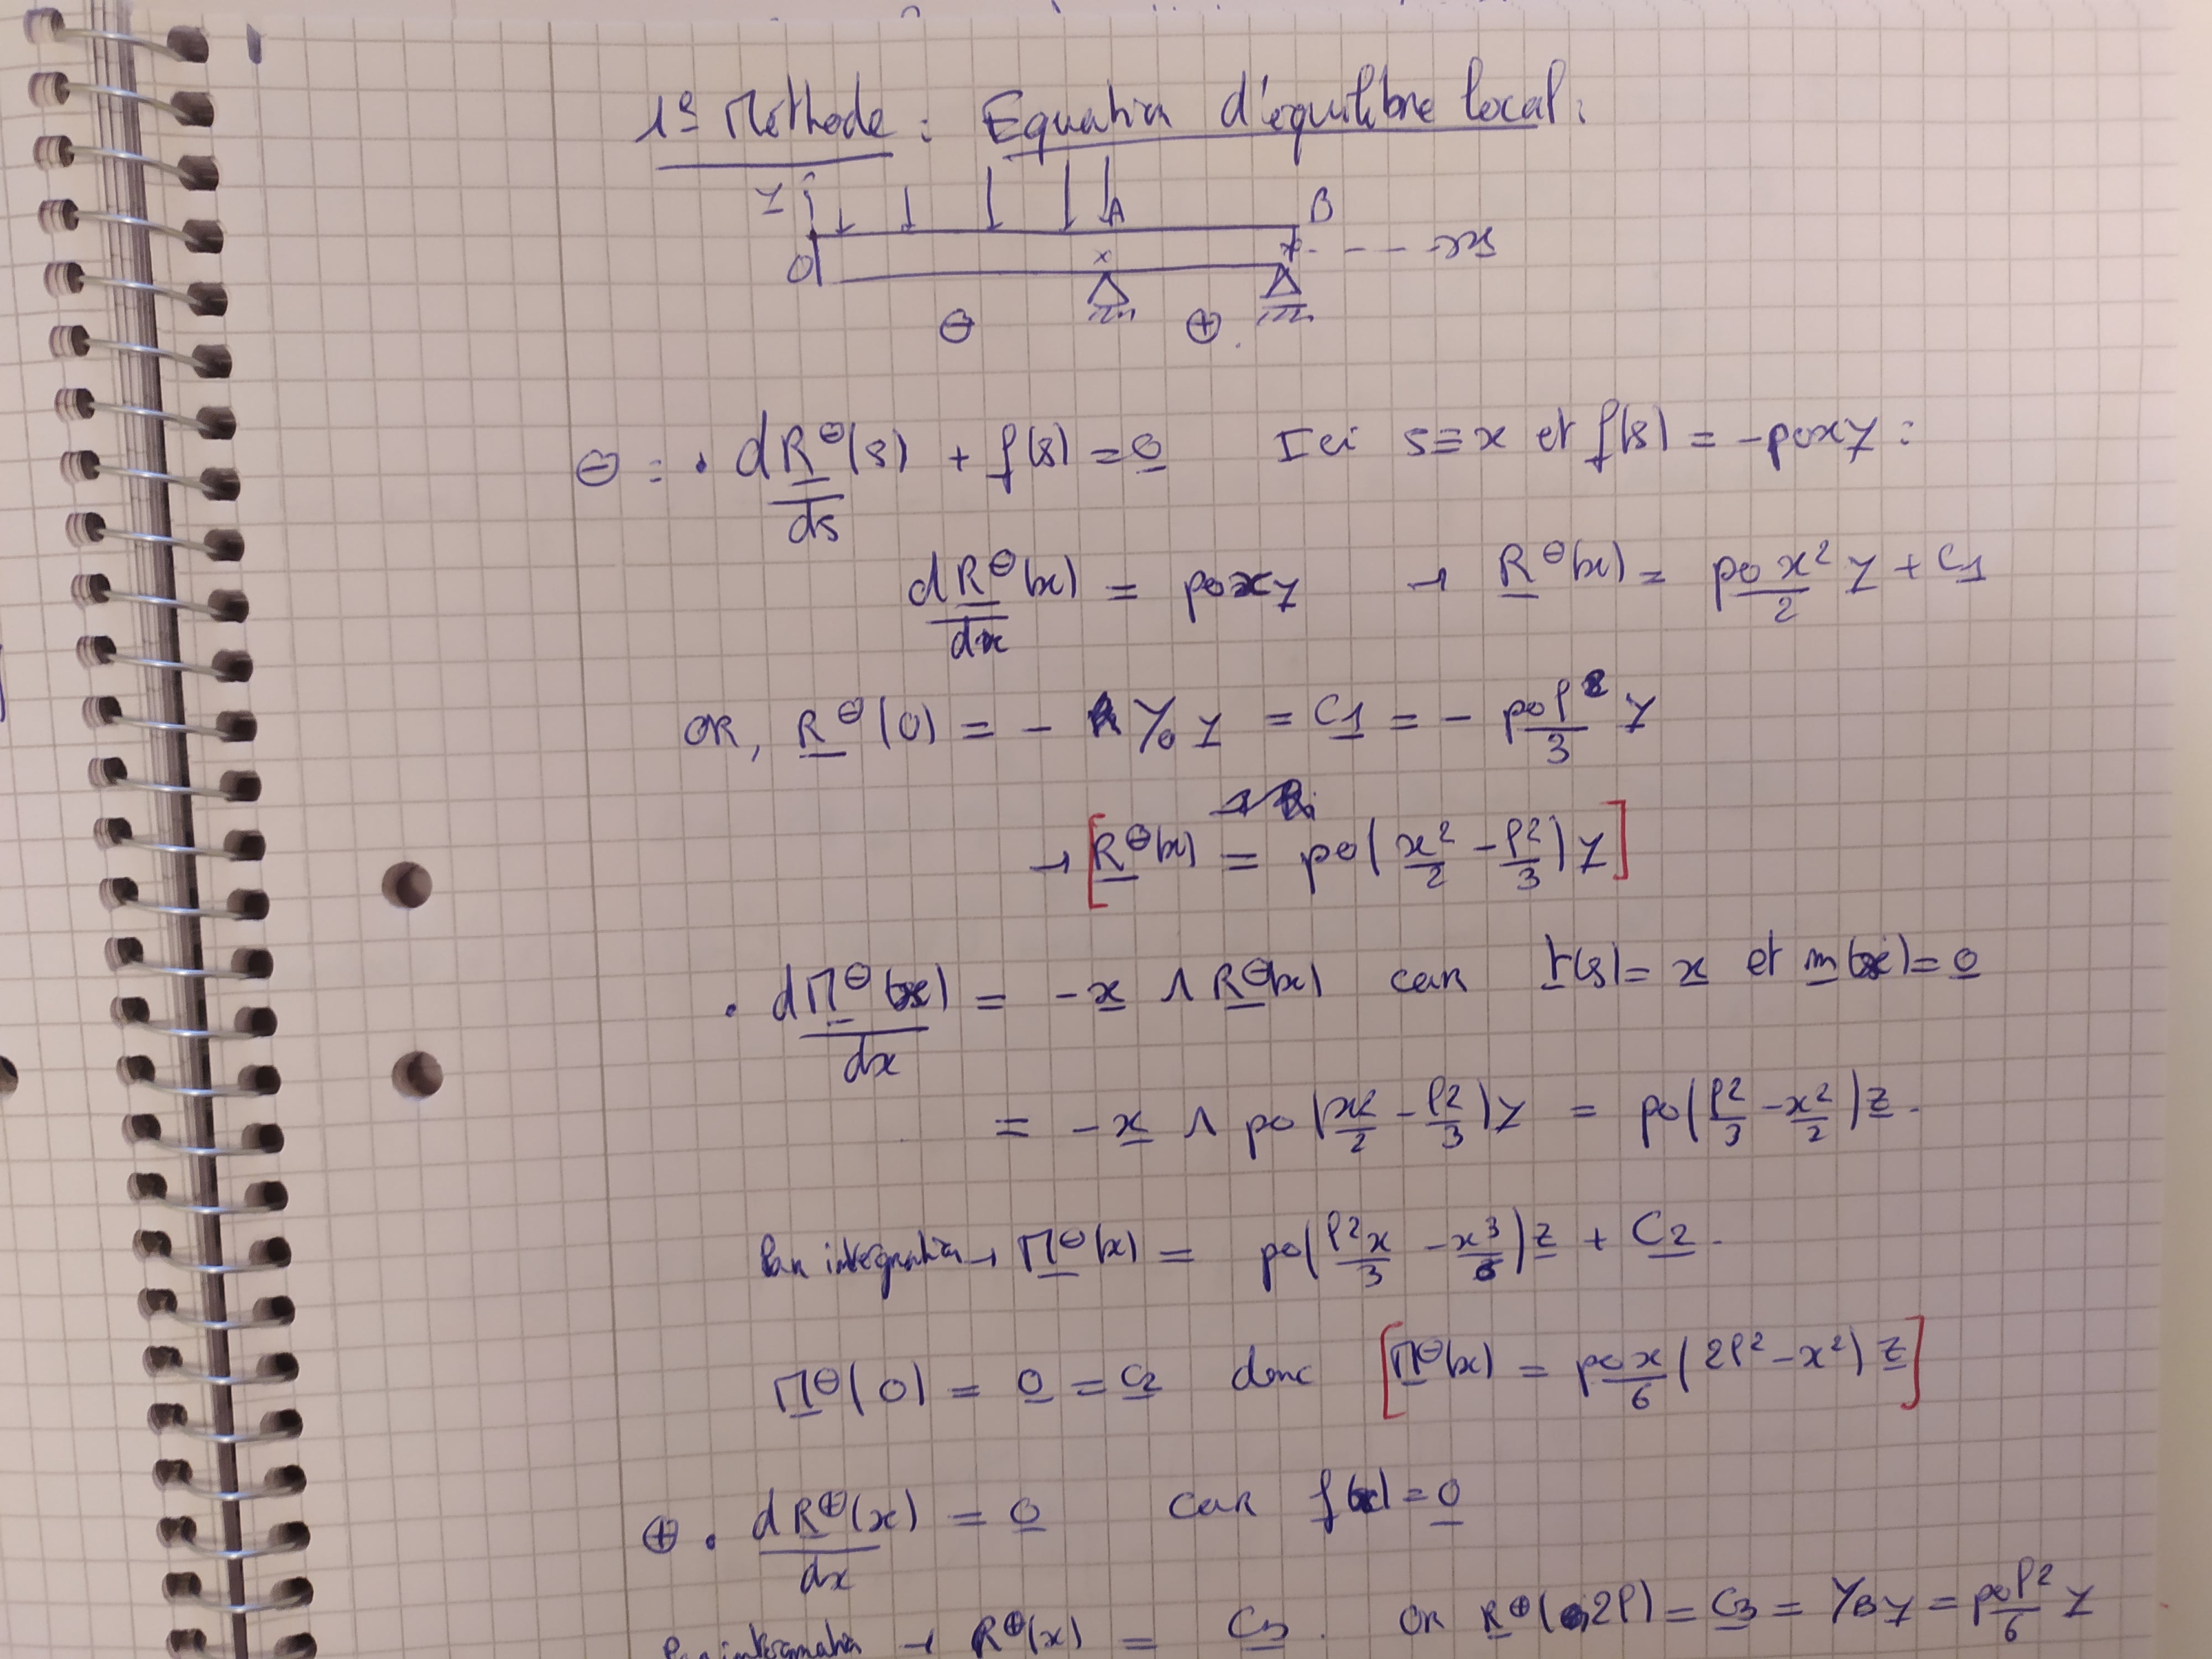 1º Méthode : Equation d'équilibre local :
y A B
O x
⊖ ⊕
⊖ : • dR^⊖(s)/ds + f(s) = 0 Ici s≡x et f(s) = -poxy :
dR^⊖(x)/dx = poxy → R^⊖(x) = po x²/2 y + C1
OR, R^⊖(0) = - Yo y = C1 = - pol²/3 y
→ [R^⊖(x) = po(x²/2 - l²/3) y]
• dM^⊖(x)/dx = -x ∧ R^⊖(x) car t(s) = x et m(x) = 0
= -x ∧ po(x²/2 - l²/3)y = po(l²/3 - x²/2)z.
Par intégration → M^⊖(x) = po(l²x/3 - x³/6)z + C2.
M^⊖(0) = 0 = C2 donc [M^⊖(x) = pox/6 (2l² - x²) z]
⊕ • dR^⊕(x)/dx = 0 car f(x) = 0
Par intégration → R^⊕(x) = C3. OR R^⊕(2l) = C3 = YB y = pol²/6 y